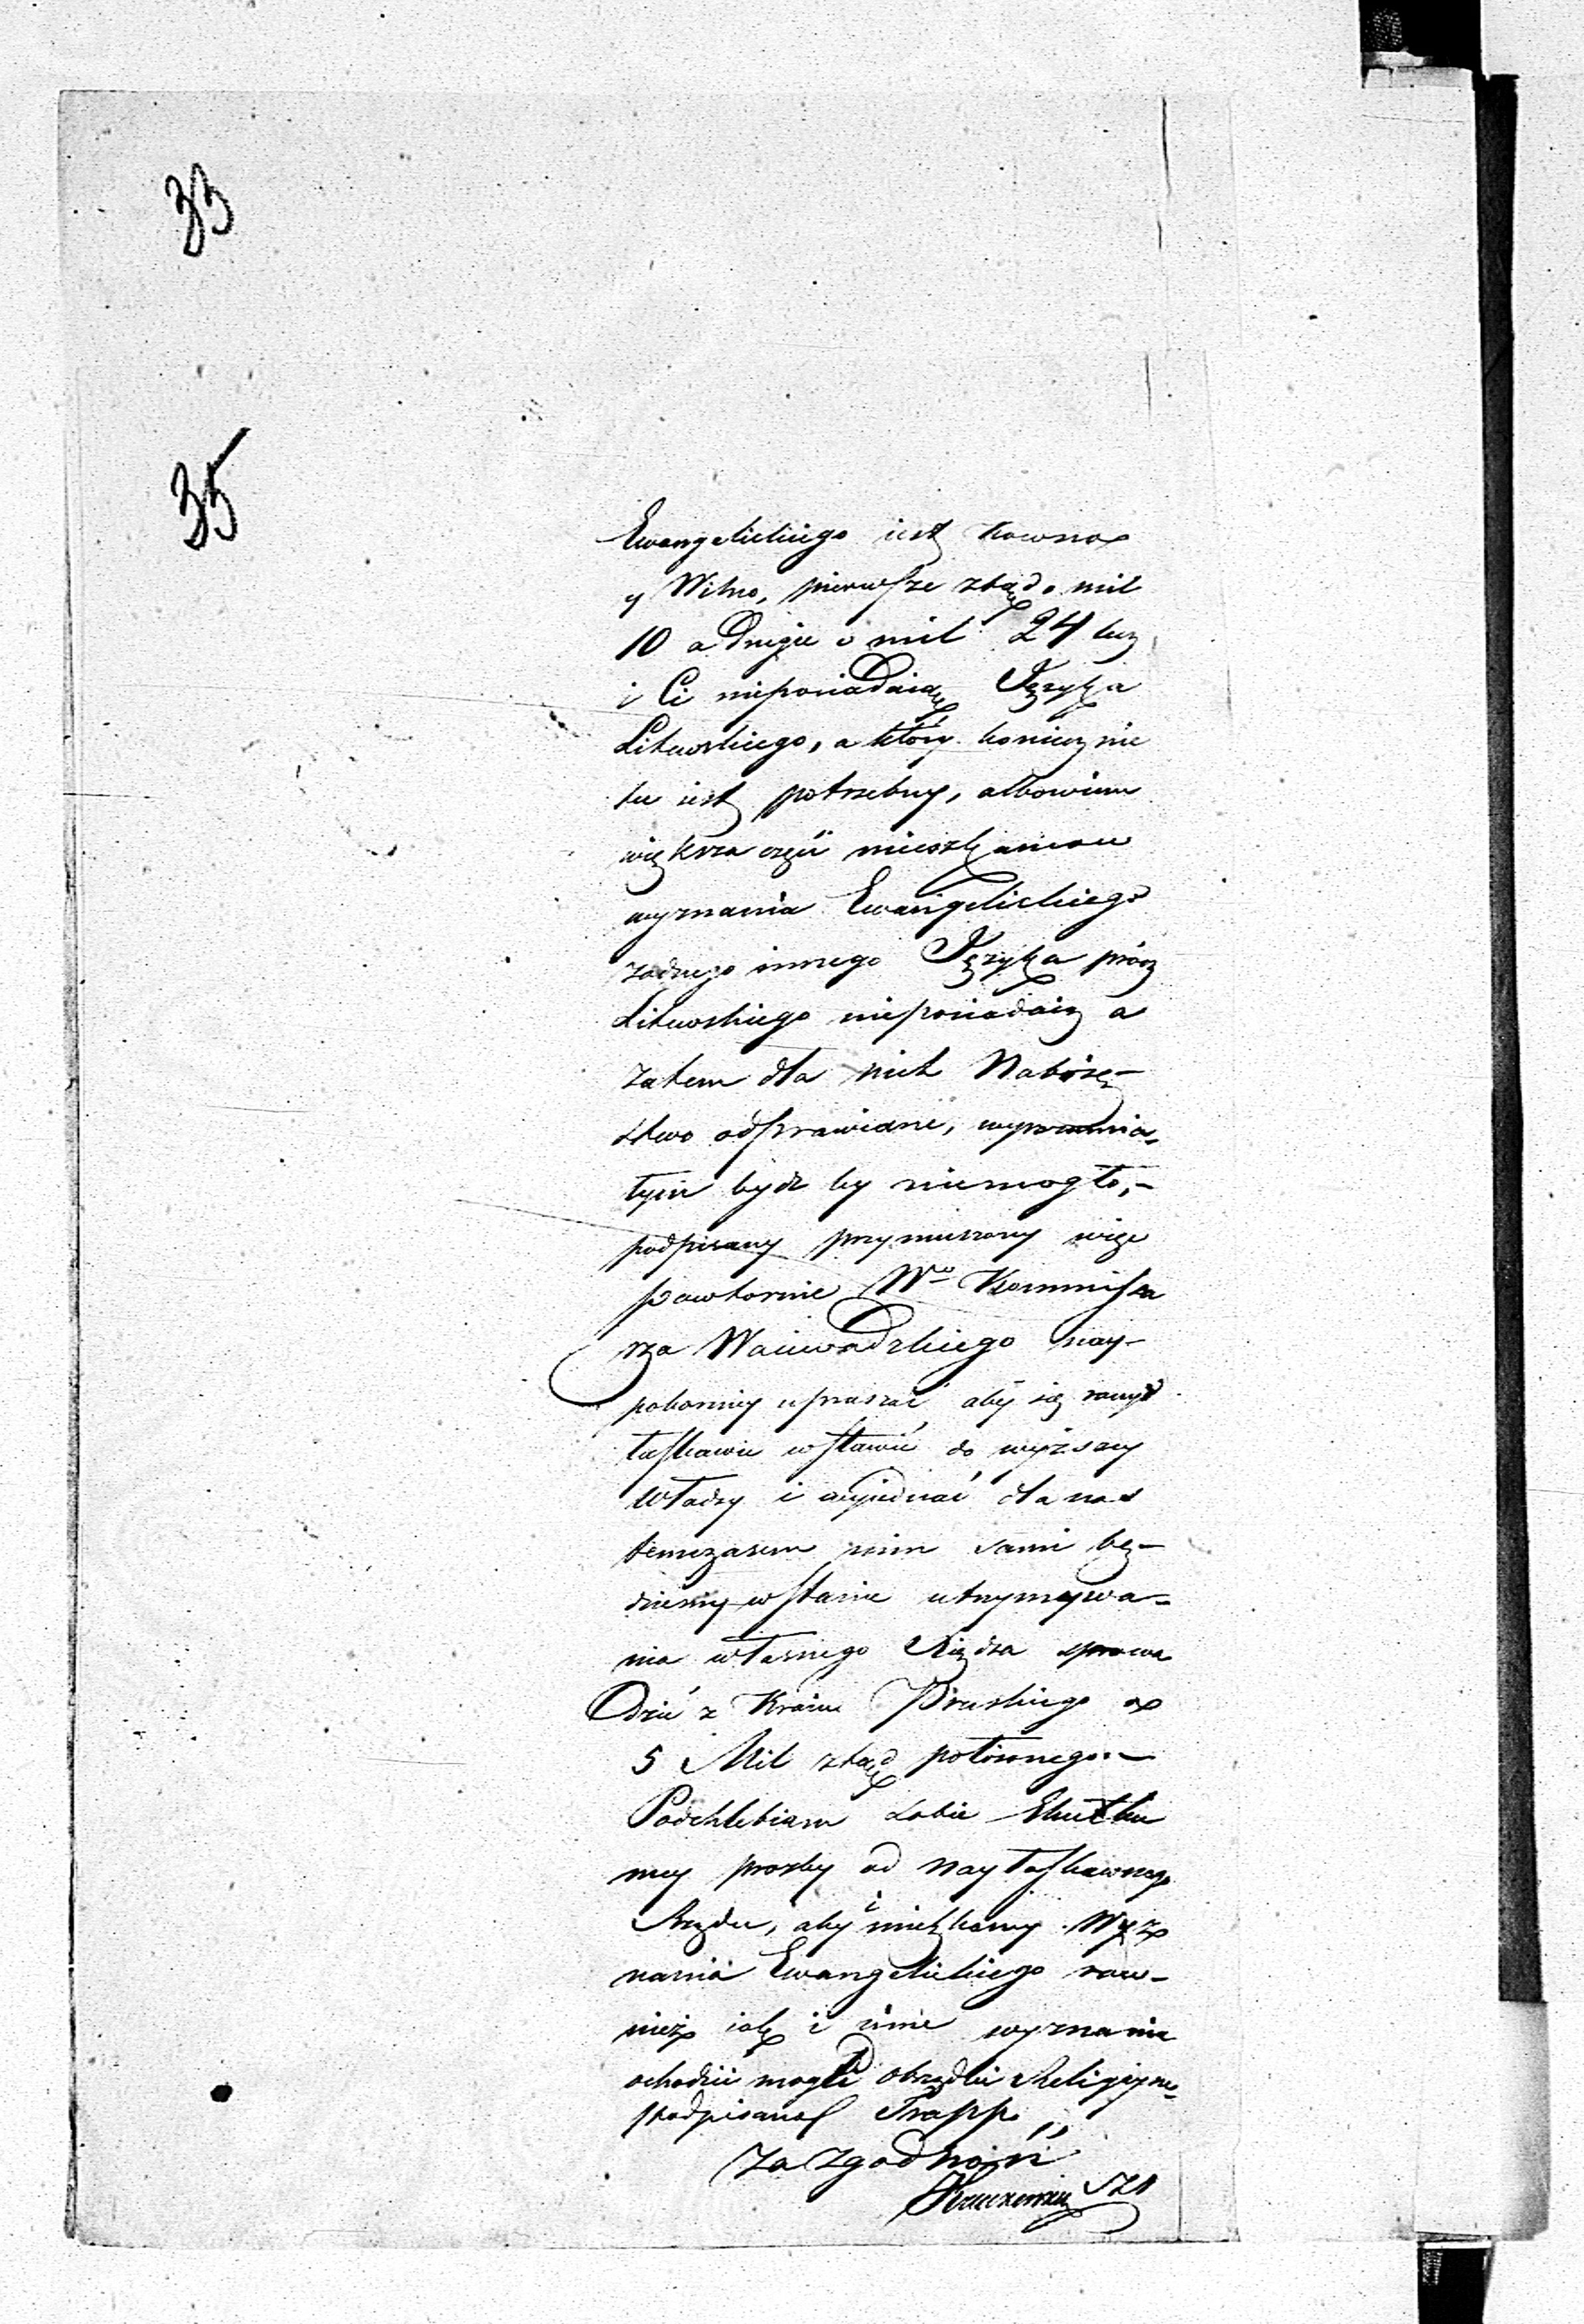 33
35
Ewangelickiego iest Kowno
y Wilno, pierwsze ztąd o mil
10 a drugie o mil 24 lecz
i Ci nieposiadaią Języka
Litewskiego, a który koniecznie
tu iest potrzebny, albowiem
większa część mieszkancow
wyznania Ewangelickiego
żadnego innego Języka prócz
Litewskiego nieposiadaią a
zatem dla nich Naboże-
stwo odprawiane,
bydz by niemogło,-
podpisany przymuszony więc
powtornie Wgo Kommissa
rza Woiewodzkiego nay-
pokorniey upraszać aby się raczył
łaskawie wstawić do wyższey
Władzy i wyiednać dla nas
temczasem nim sami bę-
dziemy w stanie utrzymywa-
nia własnego Xiędza sprowa
dzić z Kraiu Pruskiego o
5 Mil ztąd położonego.-
Podchlebiam sobie skutku
mey prozby od nayłaskawszego
Rządu, aby i mieszkancy Wyz
nania Ewangelickiego row-
nież iak i inne wyznania
obchodzić mogli obrządki Religijne-
podpisano Trapp
Za zgodność